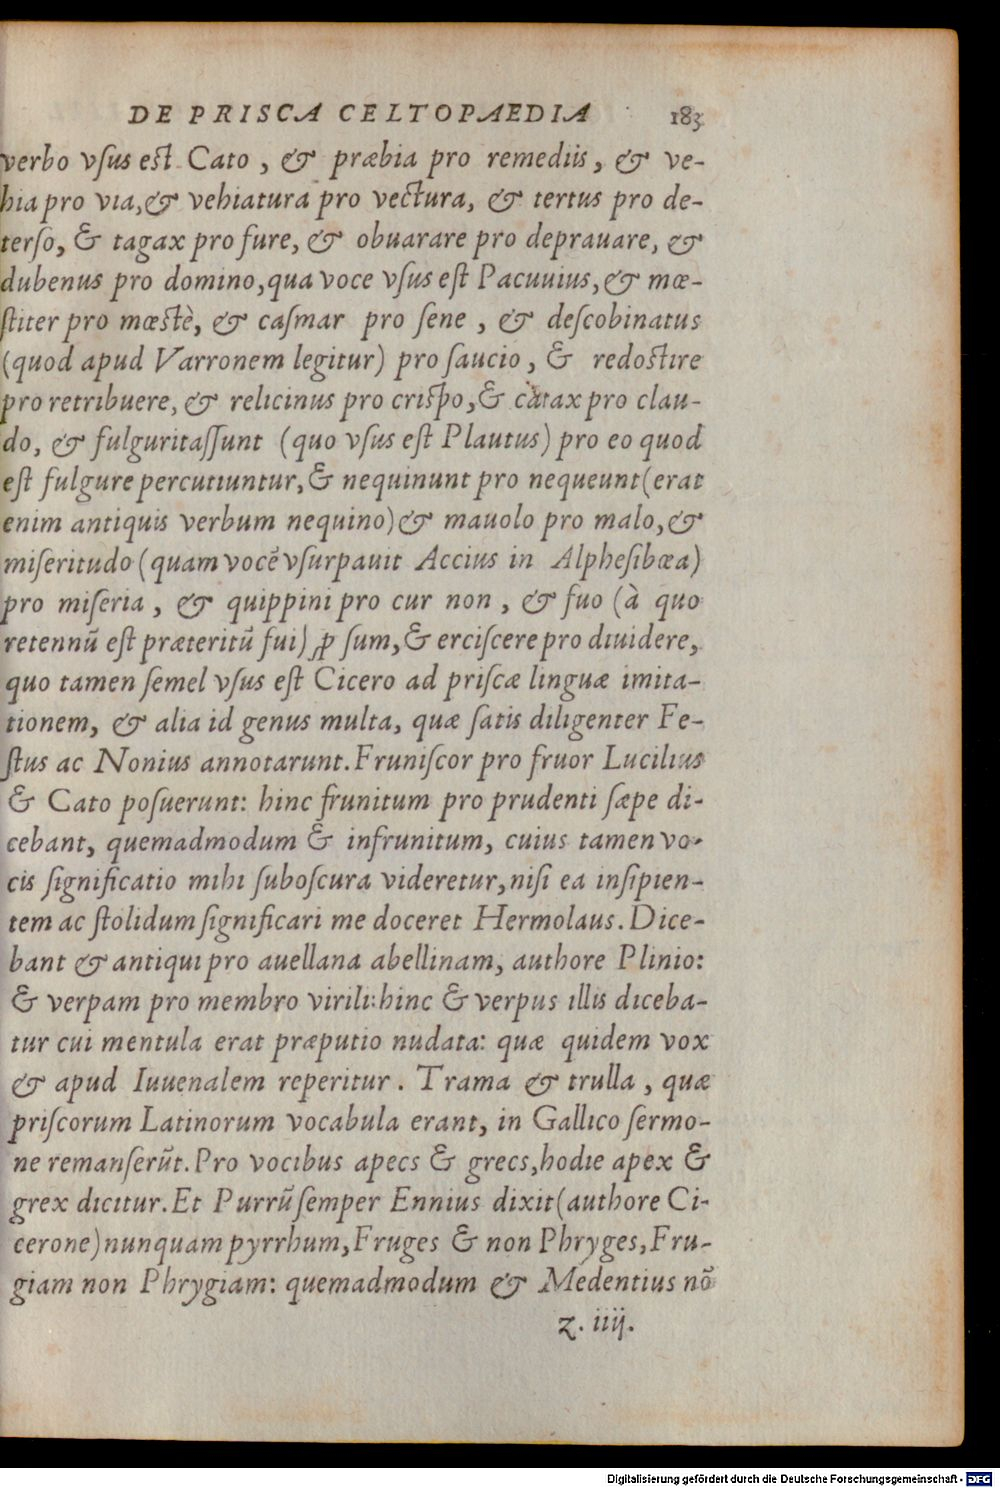 DE PRISCA CELTOPAEDIA 183
verbo vſus eſt Cato, & præbia pro remediis, & ve-
hia pro via, & vehiatura pro vectura, & tertus pro de-
terſo, & tagax pro fure, & obuarare pro deprauare, &
dubenus pro domino, qua voce vſus eſt Pacuuius, & mœ-
ſtiter pro mœſtè, & caſmar pro ſene, & deſcobinatus
(quod apud Varronem legitur) pro ſaucio, & redoſtire
pro retribuere, & relicinus pro criſpo, & catax pro clau-
do, & fulguritaſſunt (quo vſus eſt Plautus) pro eo quod
eſt fulgure percutiuntur, & nequinunt pro nequeunt (erat
enim antiquis verbum nequino) & mauolo pro malo, &
miſeritudo (quam vocẽ vſurpauit Accius in Alpheſibœa)
pro miſeria, & quippini pro cur non, & fuo (à quo
retennũ eſt præteritũ fui) ꝓ ſum, & erciſcere pro diuidere,
quo tamen ſemel vſus eſt Cicero ad priſcæ linguæ imita-
tionem, & alia id genus multa, quæ ſatis diligenter Fe-
ſtus ac Nonius annotarunt. Fruniſcor pro fruor Lucilius
& Cato poſuerunt: hinc frunitum pro prudenti ſæpe di-
cebant, quemadmodum & infrunitum, cuius tamen vo-
cis ſignificatio mihi ſuboſcura videretur, niſi ea inſipien-
tem ac ſtolidum ſignificari me doceret Hermolaus. Dice-
bant & antiqui pro auellana abellinam, authore Plinio:
& verpam pro membro virili: hinc & verpus illis diceba-
tur cui mentula erat præputio nudata: quæ quidem vox
& apud Iuuenalem reperitur. Trama & trulla, quæ
priſcorum Latinorum vocabula erant, in Gallico ſermo-
ne remanſerũt. Pro vocibus apecs & grecs, hodie apex &
grex dicitur. Et Purrũ ſemper Ennius dixit (authore Ci-
cerone) nunquam pyrrhum, Fruges & non Phryges, Fru-
giam non Phrygiam: quemadmodum & Medentius nõ
z. iiij.
Digitalisierung gefördert durch die Deutsche Forschungsgemeinschaft - DFG